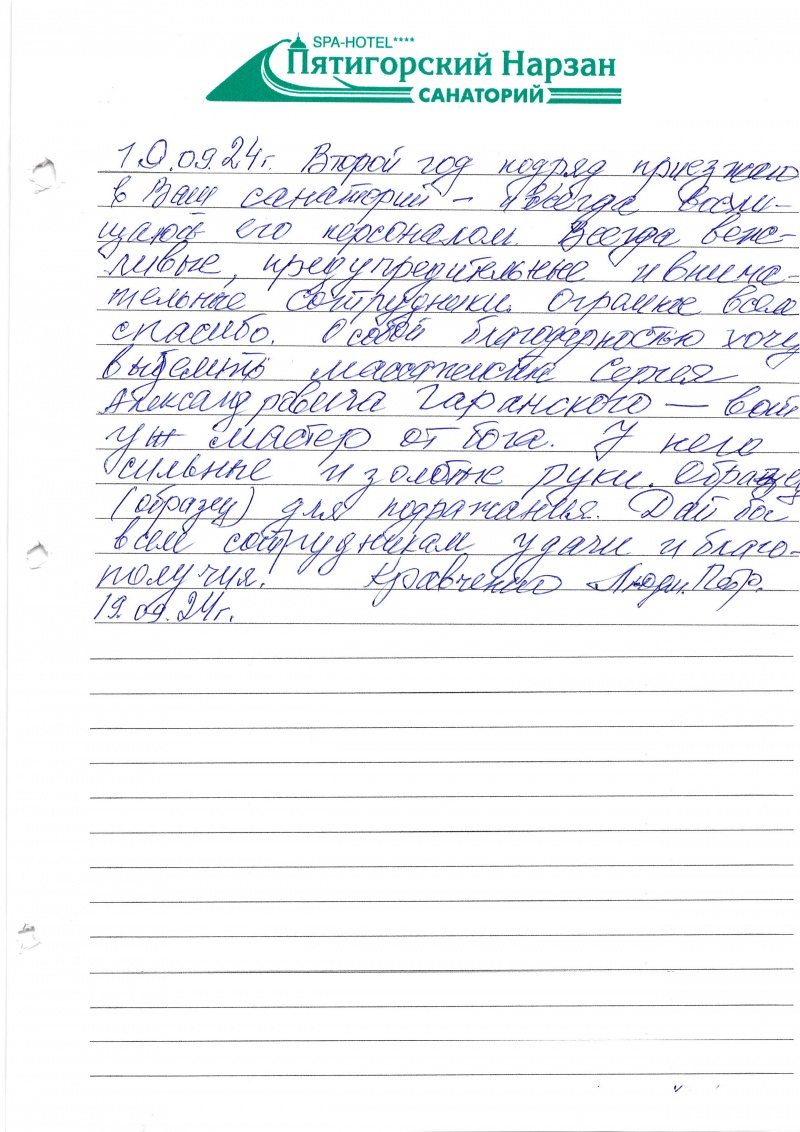 SPA-HOTEL****
Пятигорский Нарзан
САНАТОРИЙ
19.09.24г. Второй год подряд приезжаю
в Ваш санаторий – и всегда восхи-
щаюсь его персоналом. Всегда веж-
ливые, предупредительные и внима-
тельные сотрудники. Огромное всем
спасибо. Особой благодарностью хочу
выделить массажиста Сергея
Александровича Гаранского — вот
уж мастер от бога. У него
сильные и золотые руки. Образец
(образец) для подражания. Дай бог
всем сотрудникам удачи и благо-
получия. Кравченко Людм. Петр.
19.09.24г.